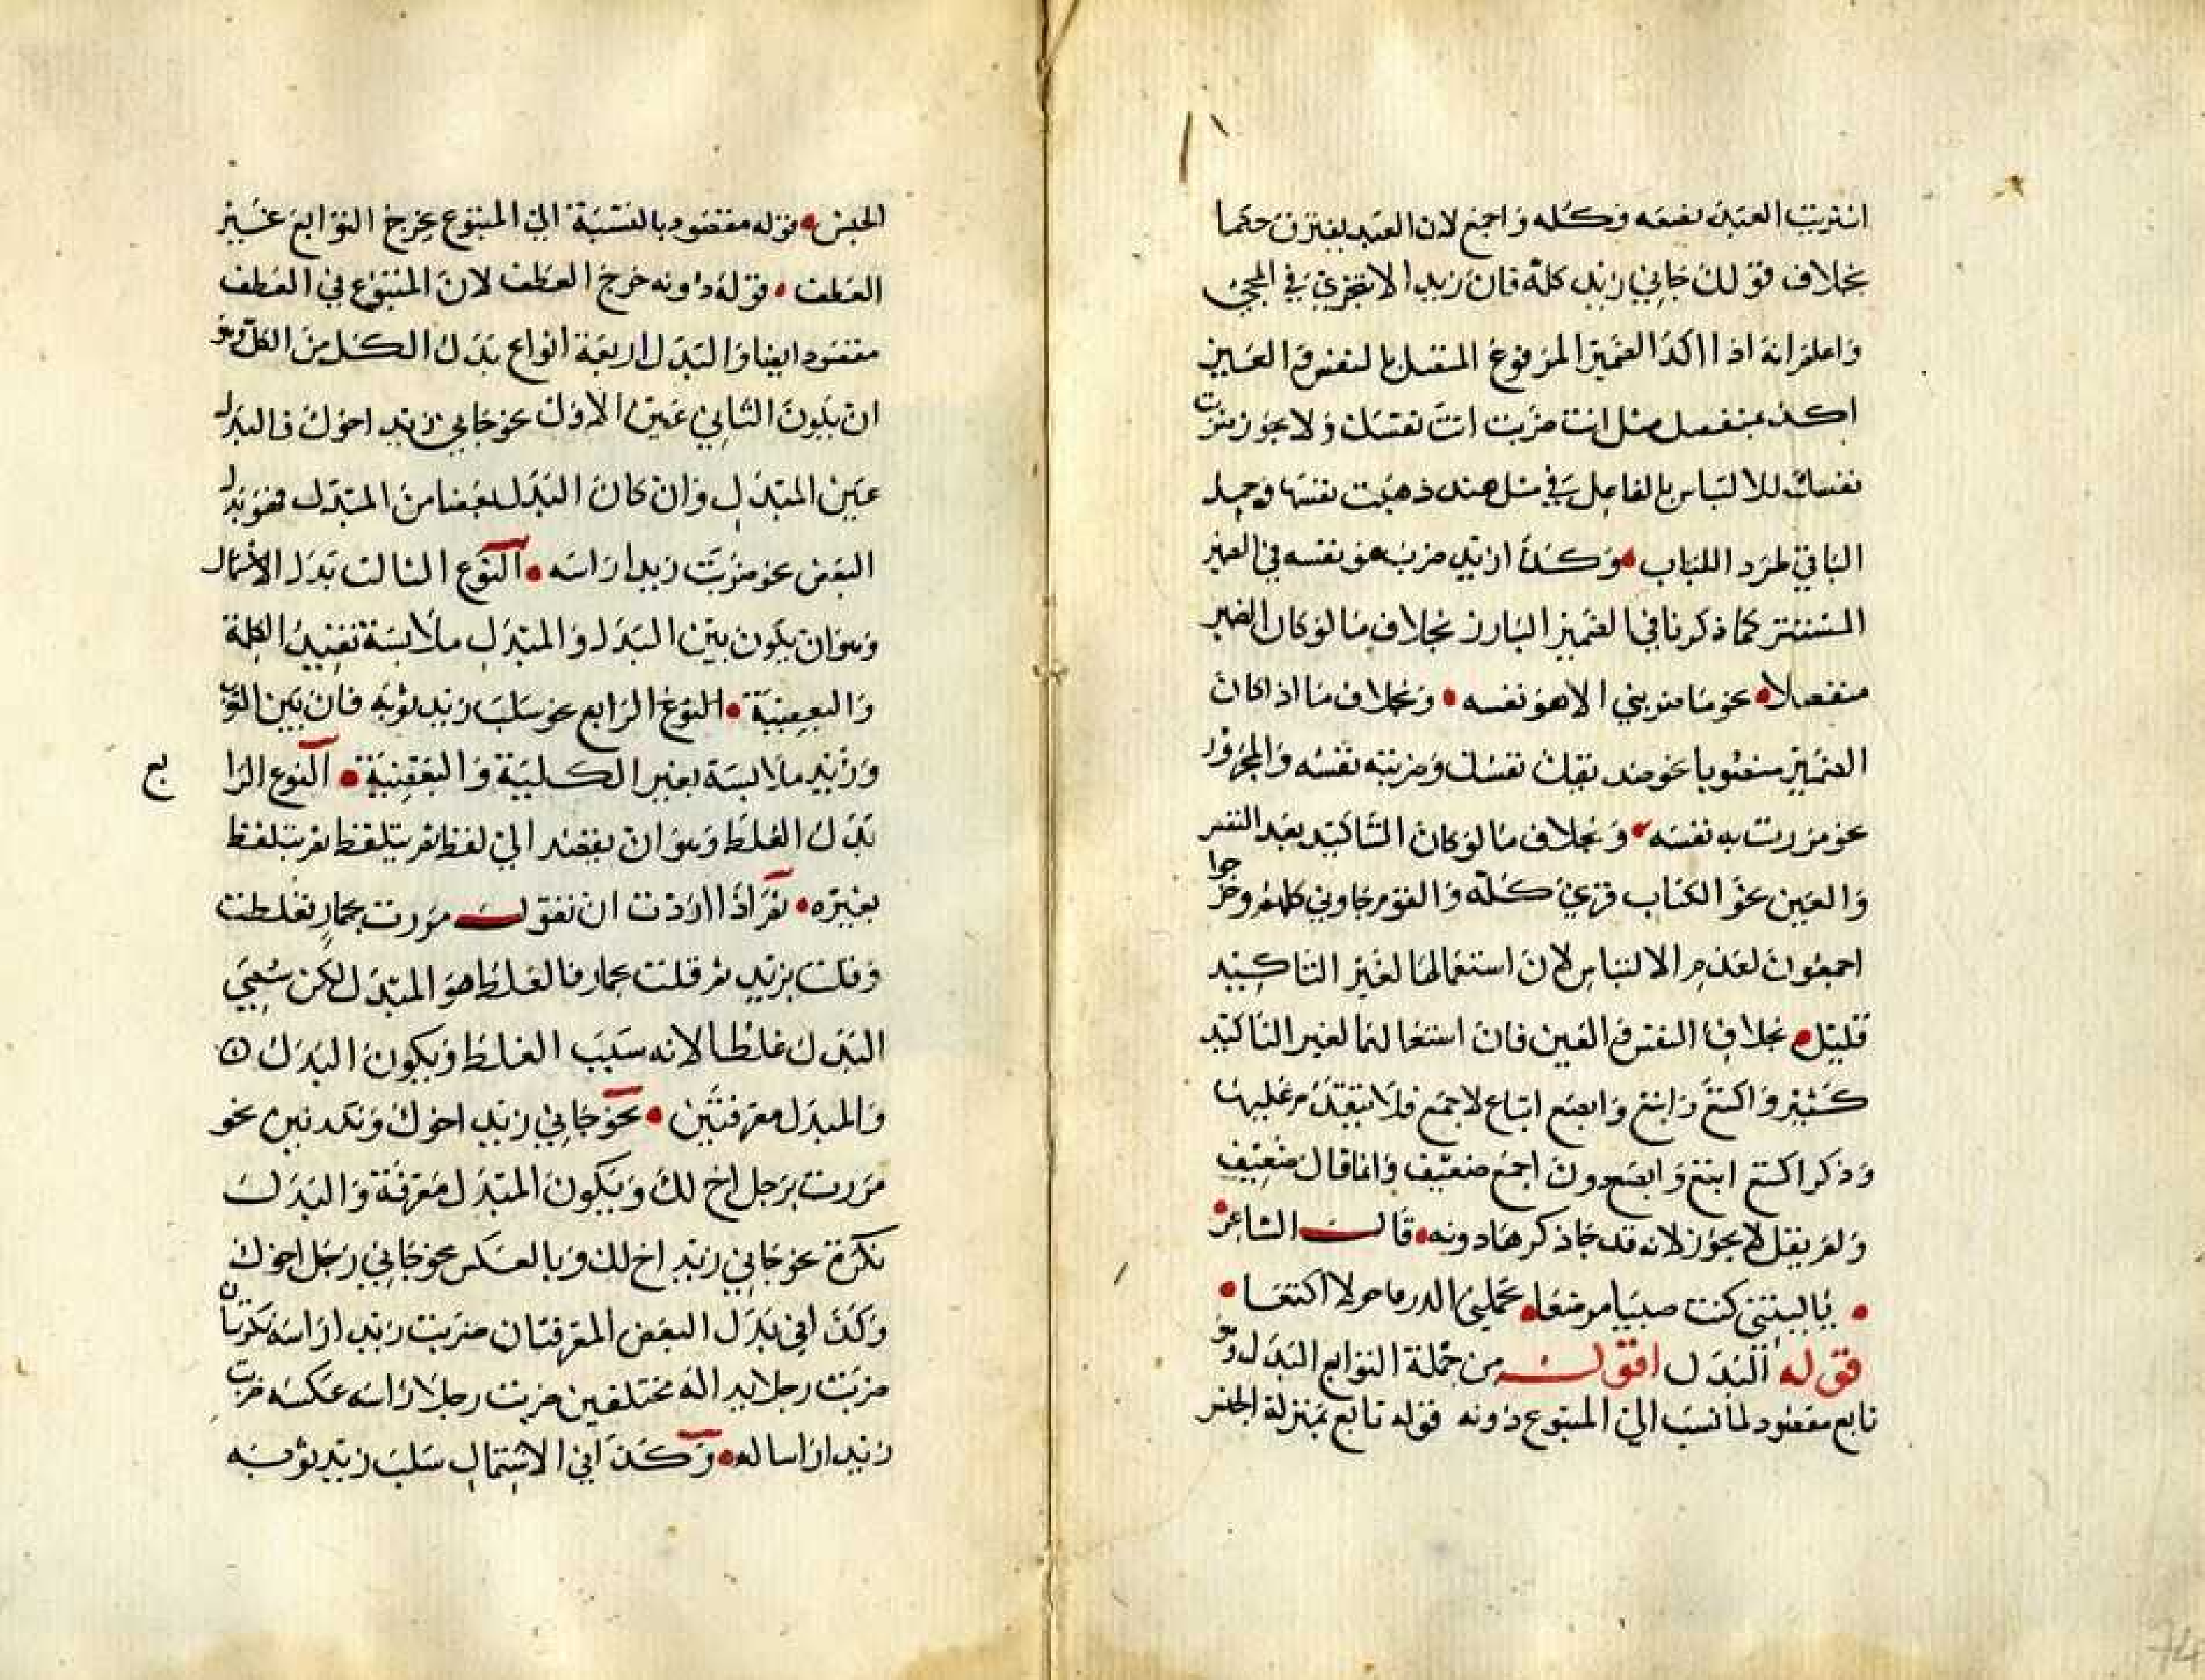 اشتريت العبد نصفه وكله واجمع لان العبد يفترق حكما
بخلاف قولك جاني زيد كله فان زيدا لا تتجزي في المجي
واعلم انه اذا اكد الضمير المرفوع المتصل بالنفس والعين
اكد بمنفصل مثل انت ضربت انت نفسك ولا يجوز ضربت
نفسك للالتباس بالفاعل في مثل هند ذهبت نفسها وحمل
الباقي طرد اللباب وكذا زيد ضرب هو نفسه في الضمير
المستتر كما ذكرنا في الضمير البارز بخلاف ما لو كان الضمير
منفصلا نحو ما ضربني الا هو نفسه وبخلاف ما اذا كان
الضمير منصوبا نحو نفسك وضربته نفسه والمجرور
نحو مررت به نفسه وبخلاف ما لو كان التاكيد بعد النفس
والعين نحو الكتاب قري كله والقوم جاوني كلهم وخرجوا
اجمعون لعدم الالتباس لان استعمالها لغير التاكيد
قليل بخلاف النفس والعين فان استعمالهما لغير التاكيد
كثير واكتع وابتع وابصع اتباع لاجمع فلا يتقدم عليها
وذكر اكتع ابتع وابصع دون اجمع ضعيف وانما قال ضعيف
ولم يقل لا يجوز لانه قد جاء ذكرها دونه قال الشاعر
يا ليتني كنت صبيا مرضعا تحملني الدرما حولا اكتعا
قوله البدل اقول من جملة التوابع البدل وهو
تابع مقصود لما نسب الي المتبوع دونه قوله تابع بمنزلة الجنس
الجنس قوله مقصود بالنسبة الي المتبوع يخرج التوابع غير
العطف قوله دونه خرج العطف لان المتبوع في العطف
مقصود ايضا والبدل اربعة انواع بدل الكل من الكل وهو
ان يكون الثاني عين الاول نحو جاني زيد اخوك فالبدل
عين المبدل وان كان البدل بعضا من المبدل فهو بدل
البعض نحو ضربت زيدا راسه النوع الثالث بدل الاشتمال
وهو ان يكون بين البدل والمبدل ملابسة بغير الكلية
والبعضية النوع الرابع نحو سلب زيد ثوبه فان بين الثوب
وزيد ملابسة بغير الكلية والبعضية النوع الرا
بع
بدل الغلط وهو ان يقصد الي لفظ ثم يتلفظ ثم يتلفظ
بغيره ثم اذا اردت ان تقول مررت بحمار فغلطت
وقلت بزيد ثم قلت بحمار فالغلط هو المبدل لكن سمي
البدل غلطا لانه سبب الغلط ويكون البدل
والمبدل معرفتين نحو جاني زيد اخوك ونكرتين نحو
مررت برجل اخ لك ويكون المبدل معرفة والبدل
نكرة نحو جاني زيد اخ لك وبالعكس نحو جاني رجل اخوك
وكذا في بدل البعض المعرفتان ضربت زيدا راسه نكرتان
ضربت رجلا يدا له مختلفين ضربت رجلا راسه عكسه ضربت
زيدا راسا له وكذا في الاشتمال سلب زيد ثوبه